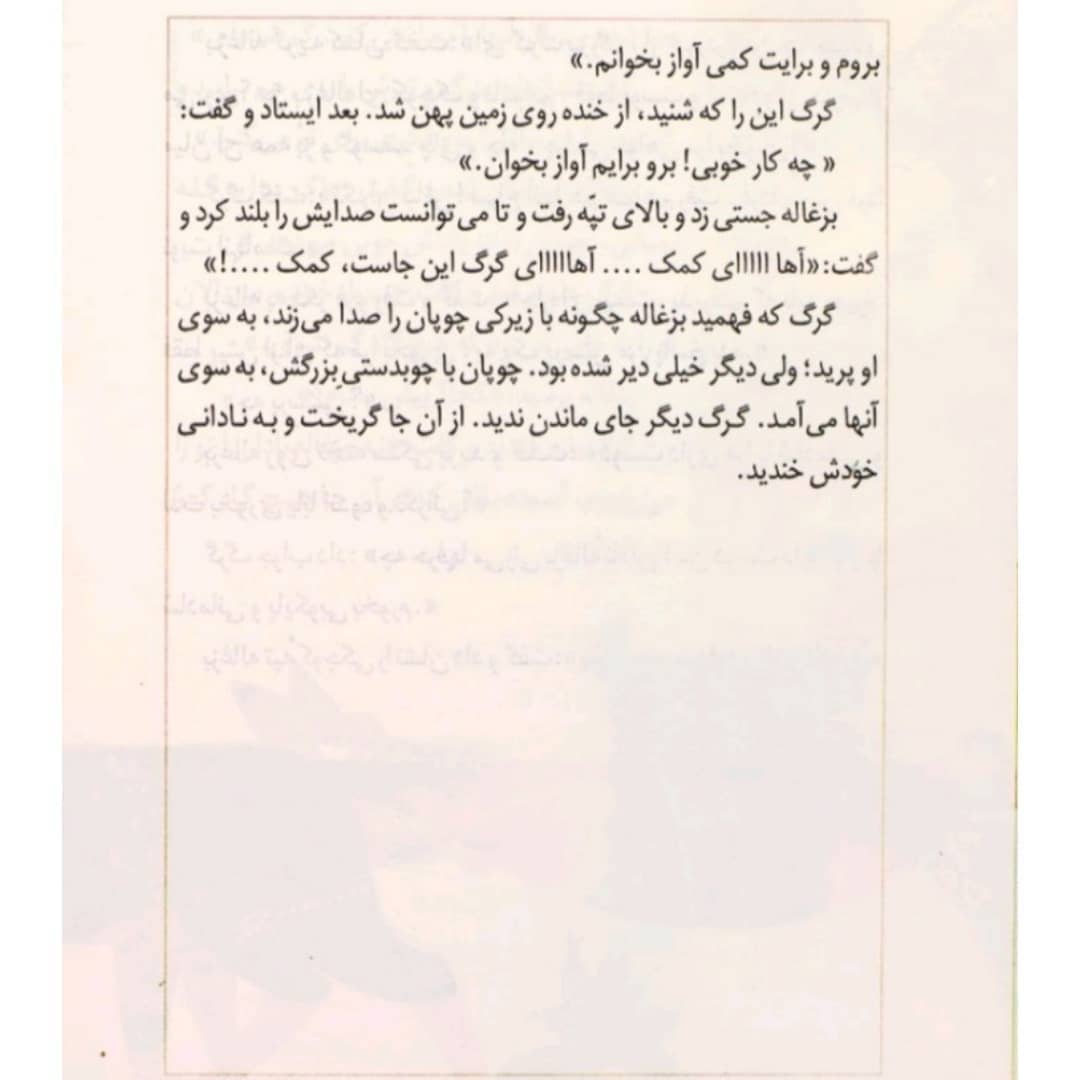 بروم و برایت کمی آواز بخوانم.»
گرگ این را که شنید، از خنده روی زمین پهن شد. بعد ایستاد و گفت:
« چه کار خوبی! برو برایم آواز بخوان.»
بزغاله جستی زد و بالای تپّه رفت و تا می‌توانست صدایش را بلند کرد و
گفت:«آها اااااای کمک .... آهااااای گرگ این جاست، کمک ....!»
گرگ که فهمید بزغاله چگونه با زیرکی چوپان را صدا می‌زند، به سوی
او پرید؛ ولی دیگر خیلی دیر شده بود. چوپان با چوبدستیِ بزرگش، به سوی
آنها می‌آمد. گرگ دیگر جای ماندن ندید. از آن جا گریخت و به نادانی
خودش خندید.